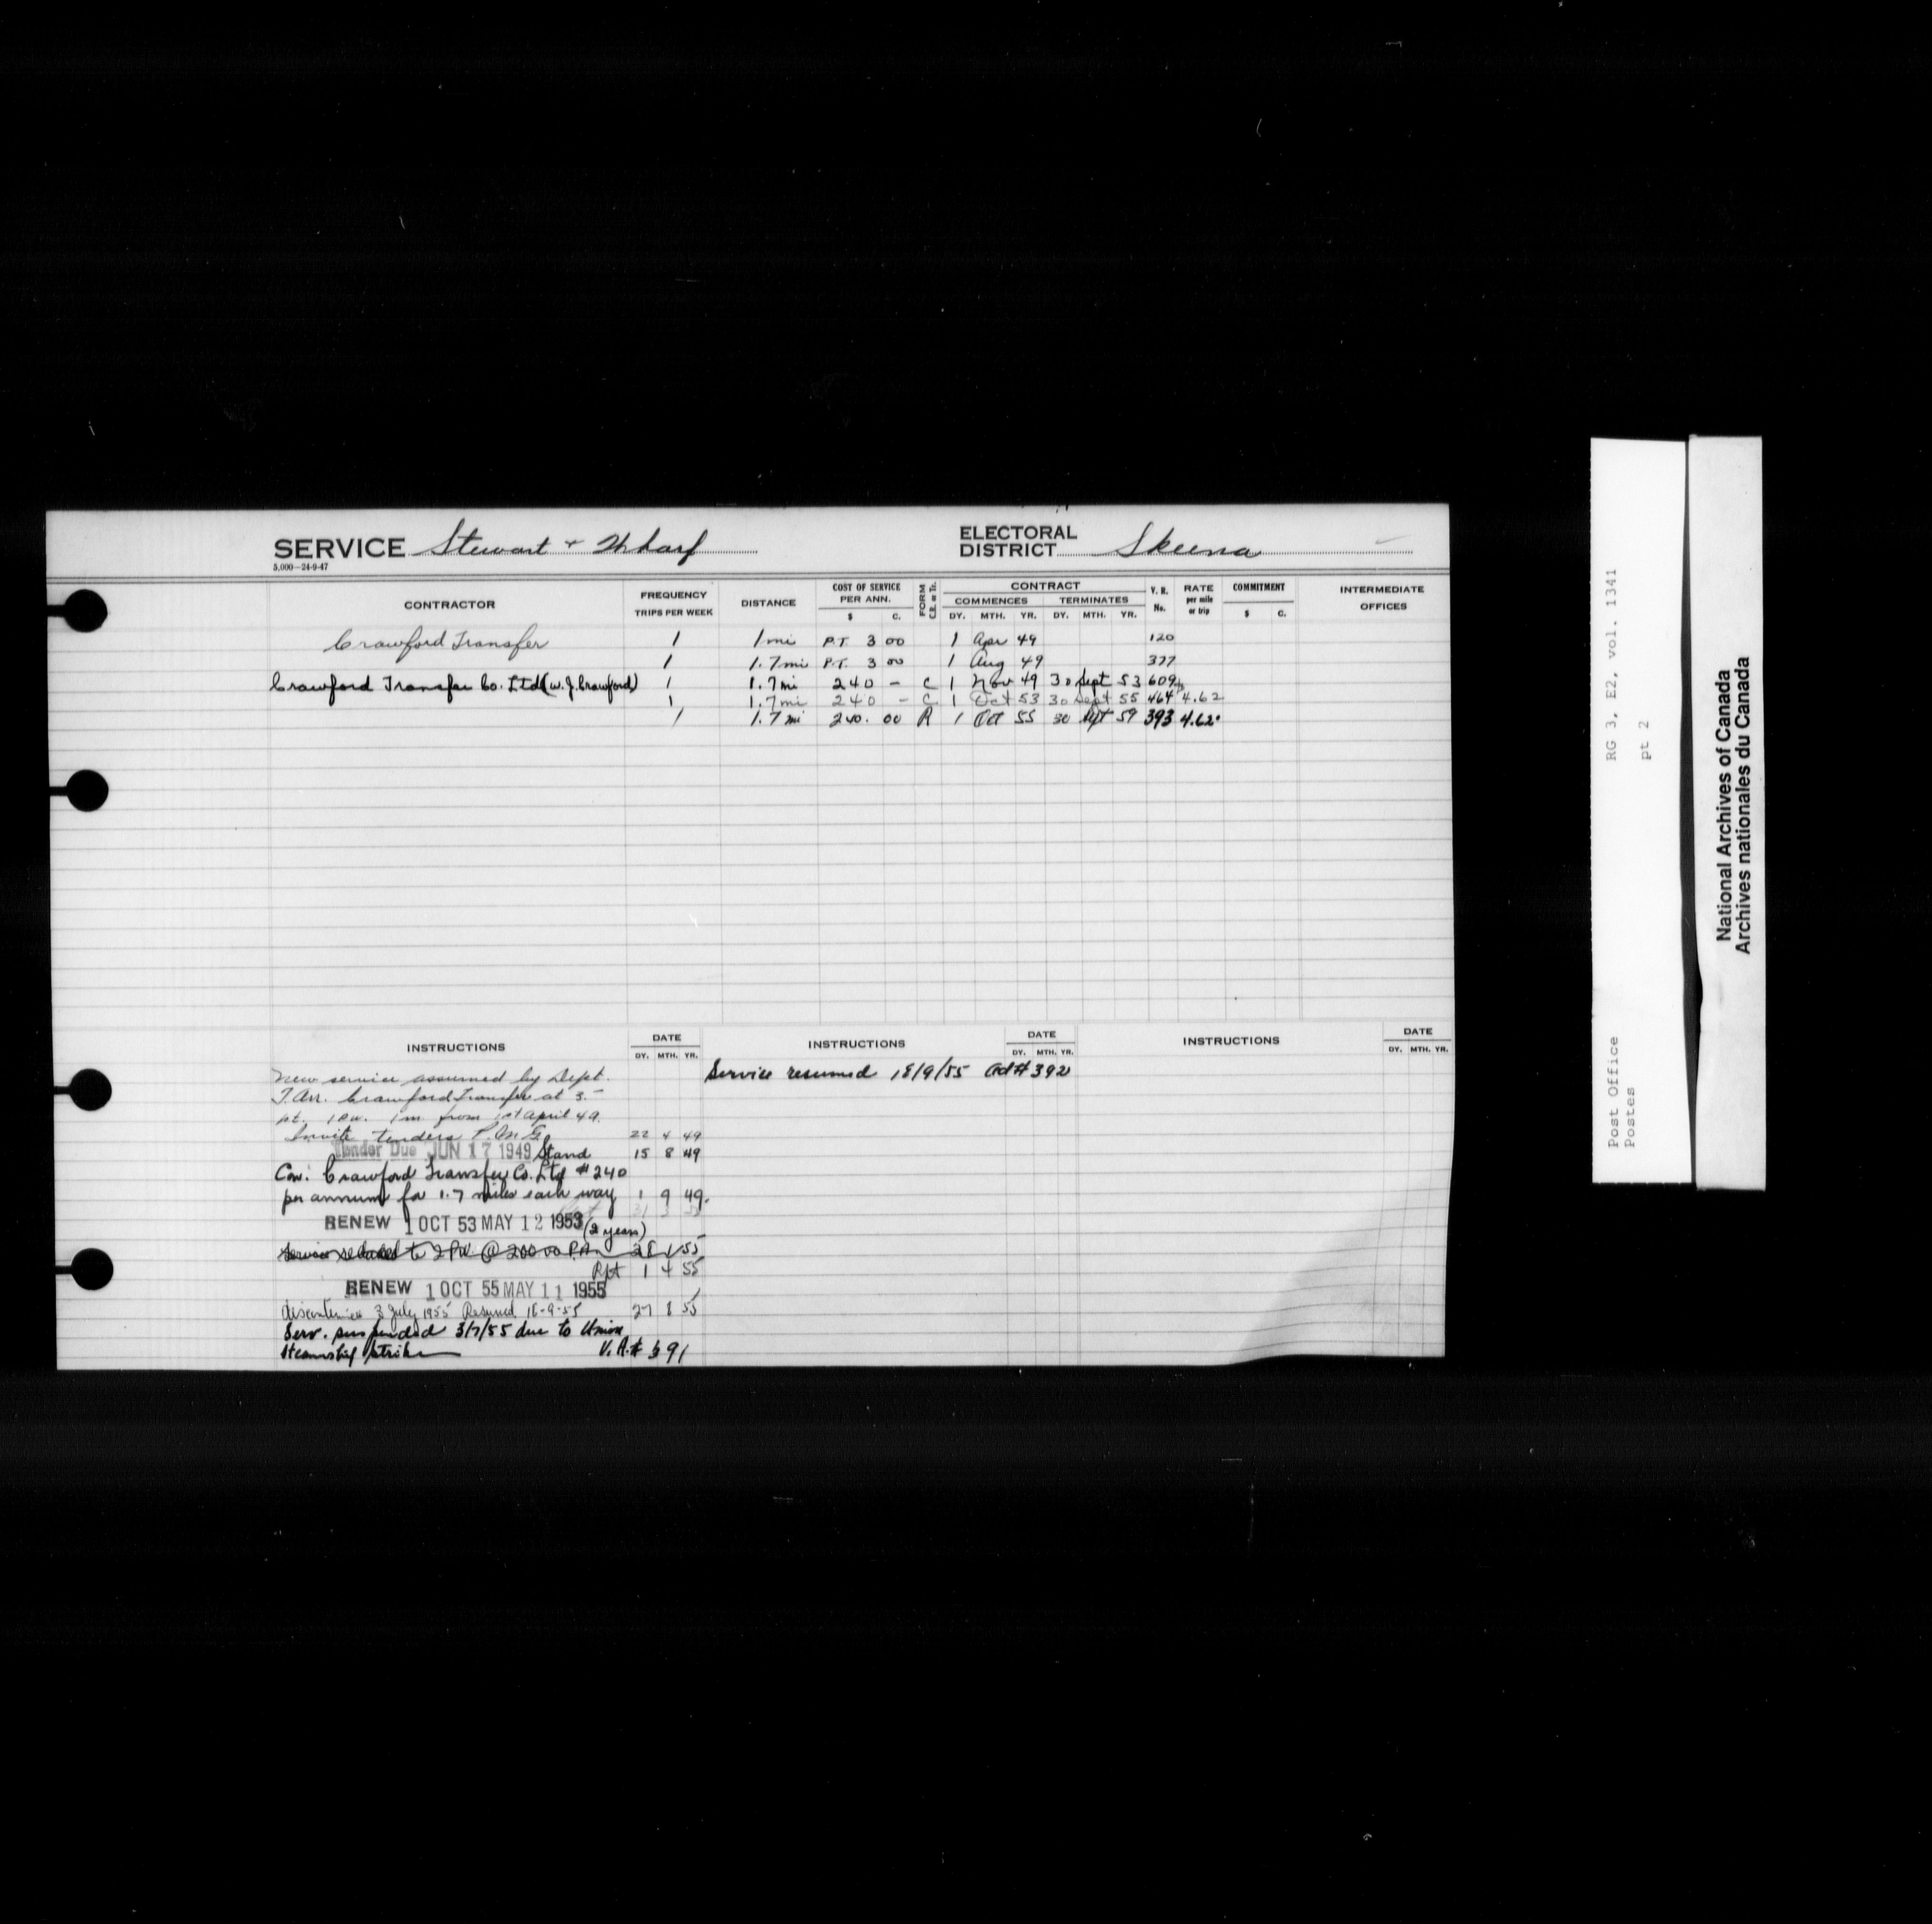 SERVICE Stewart + Wharf ELECTORAL DISTRICT Skeena
5,000—24-9-47
CONTRACTOR FREQUENCY TRIPS PER WEEK DISTANCE COST OF SERVICE PER ANN. $ C. FORM C.R. or Tr. CONTRACT COMMENCES DY. MTH. YR. TERMINATES DY. MTH. YR. V. R. No. RATE per mile or trip COMMITMENT $ C. INTERMEDIATE OFFICES
Crawford Transfer 1 1 mi P.T. 3 00 1 Apr 49 120
1 1.7 mi P.T. 3 00 1 Aug 49 377
Crawford Transfer Co. Ltd (W. J. Crawford) 1 1.7 mi 240 – C 1 Nov 49 30 Sept 53 609
1 1.7 mi 240 – C 1 Oct 53 30 Sept 55 464 4.62
1 1.7 mi 240. 00 R 1 Oct 55 30 Sept 59 393 4.62
INSTRUCTIONS DATE DY. MTH. YR. INSTRUCTIONS DATE DY. MTH. YR. INSTRUCTIONS DATE DY. MTH. YR.
New service assumed by Dept.
T. Arr. Crawford Transfer at 3.–
pt. 1 p.w. 1 m. from 1st April 49.
Invite tenders P.M.G. 22 4 49
Tender Due JUN 17 1949 Stand 15 8 49
Con: Crawford Transfer Co. Ltd # 240
per annum for 1.7 miles each way 1 9 49.
RENEW 1 OCT 53 MAY 12 1953 (2 years)
Service reduced to 2 P.W. @ 200 00 P.A. 28 1 55
Rpt 1 4 55
RENEW 1 OCT 55 MAY 11 1955
discontinued 3 July 1955 Resumed 18-9-55 27 8 55
Serv. suspended 3/7/55 due to Union
Steamship strike V.A.# 391
Service resumed 18/9/55 Ad# 392
RG 3, E2, vol. 1341
pt 2
Post Office
Postes
National Archives of Canada
Archives nationales du Canada